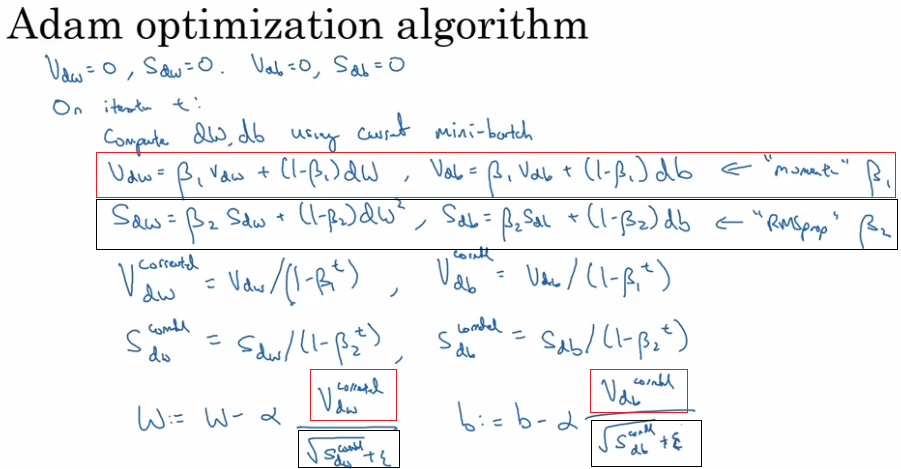 Adam optimization algorithm
V_dw = 0, S_dw = 0. V_db = 0, S_db = 0
On iteration t:
Compute dW, db using current mini-batch
V_dw = β₁ V_dw + (1-β₁) dW , V_db = β₁ V_db + (1-β₁) db ← "moment" β₁
S_dw = β₂ S_dw + (1-β₂) dW² , S_db = β₂ S_db + (1-β₂) db ← "RMSprop" β₂
V_dw^corrected = V_dw / (1-β₁^t) , V_db^corrected = V_db / (1-β₁^t)
S_dw^corrected = S_dw / (1-β₂^t) , S_db^corrected = S_db / (1-β₂^t)
W := W - α V_dw^corrected / √S_dw^corrected + ε b := b - α V_db^corrected / √S_db^corrected + ε